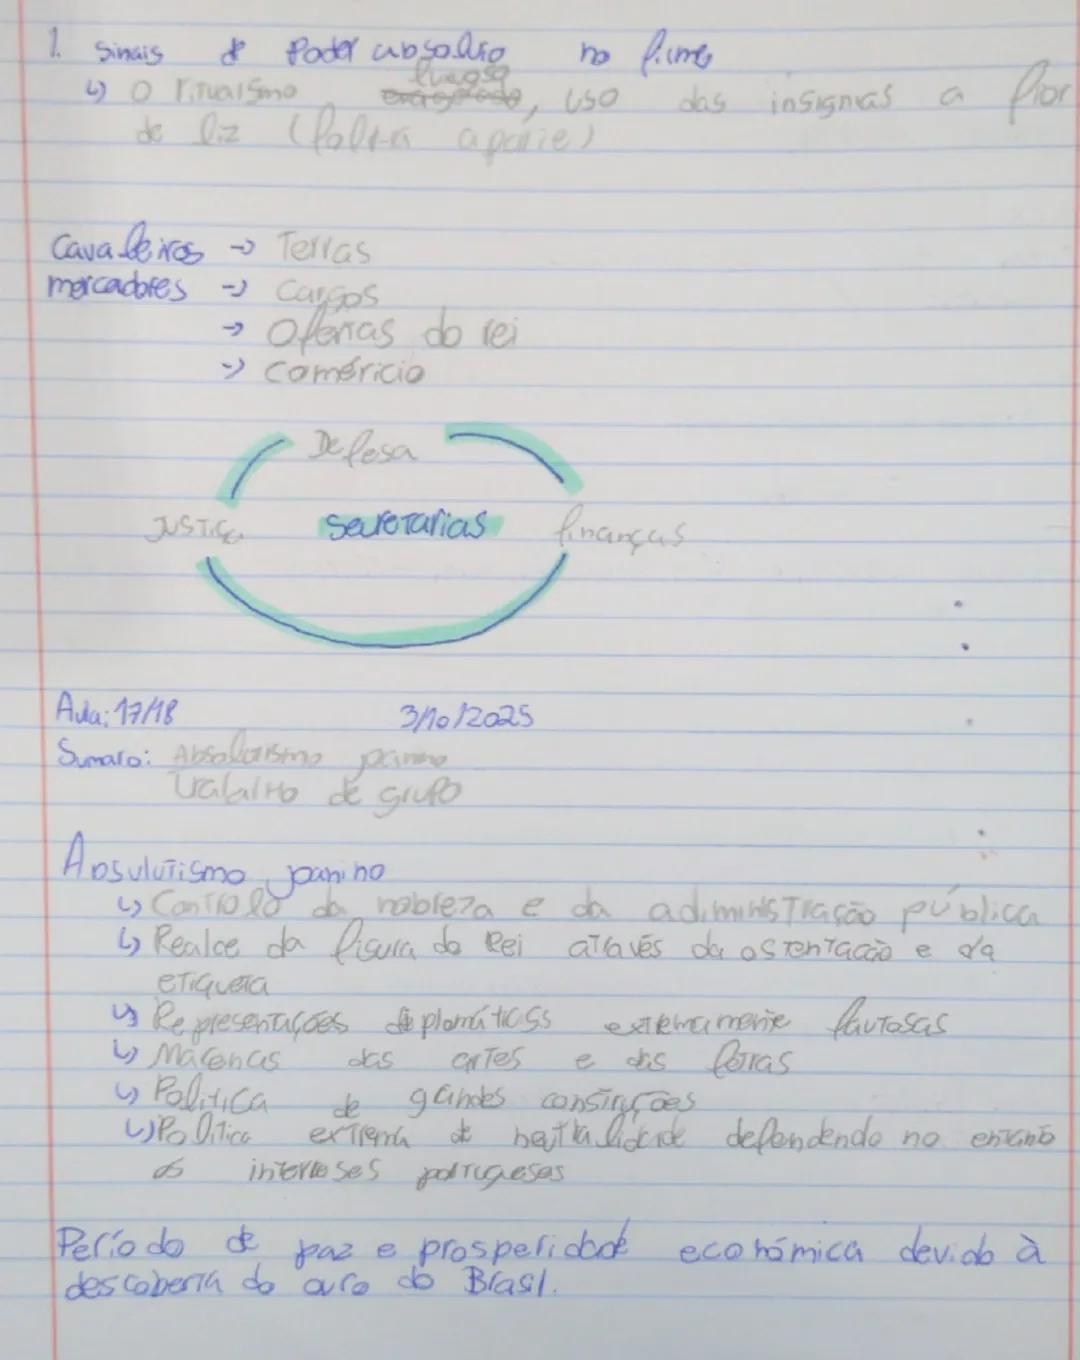 1. Sinais de Poder absoluto no filme
↳ O ritualsmo luxoso, uso das insignias a flor
de liz (falta a parte)
Cavaleiros → Terras
mercadores → Cargos
→ Ofertas do rei
→ Coméricio
Defesa
JUSTIça secretarias finanças
Aula: 17/18 3/10/2025
Sumaro: Absolutismo joanino
Trabalho de grupo
Absulutismo joanino
↳ Controlo da nobreza e da administração pública
↳ Realce da figura do Rei através da ostentação e da
etiqueta
↳ Representações diplomáticas extremamente faustosas
↳ Macenas das artes e das letras
↳ Politica de grandes construções
↳ Politica externa de neutralidade defendendo no entanto
os interesses portugueses
Período de paz e prosperidade económica devido à
descoberta do ouro do Brasil.